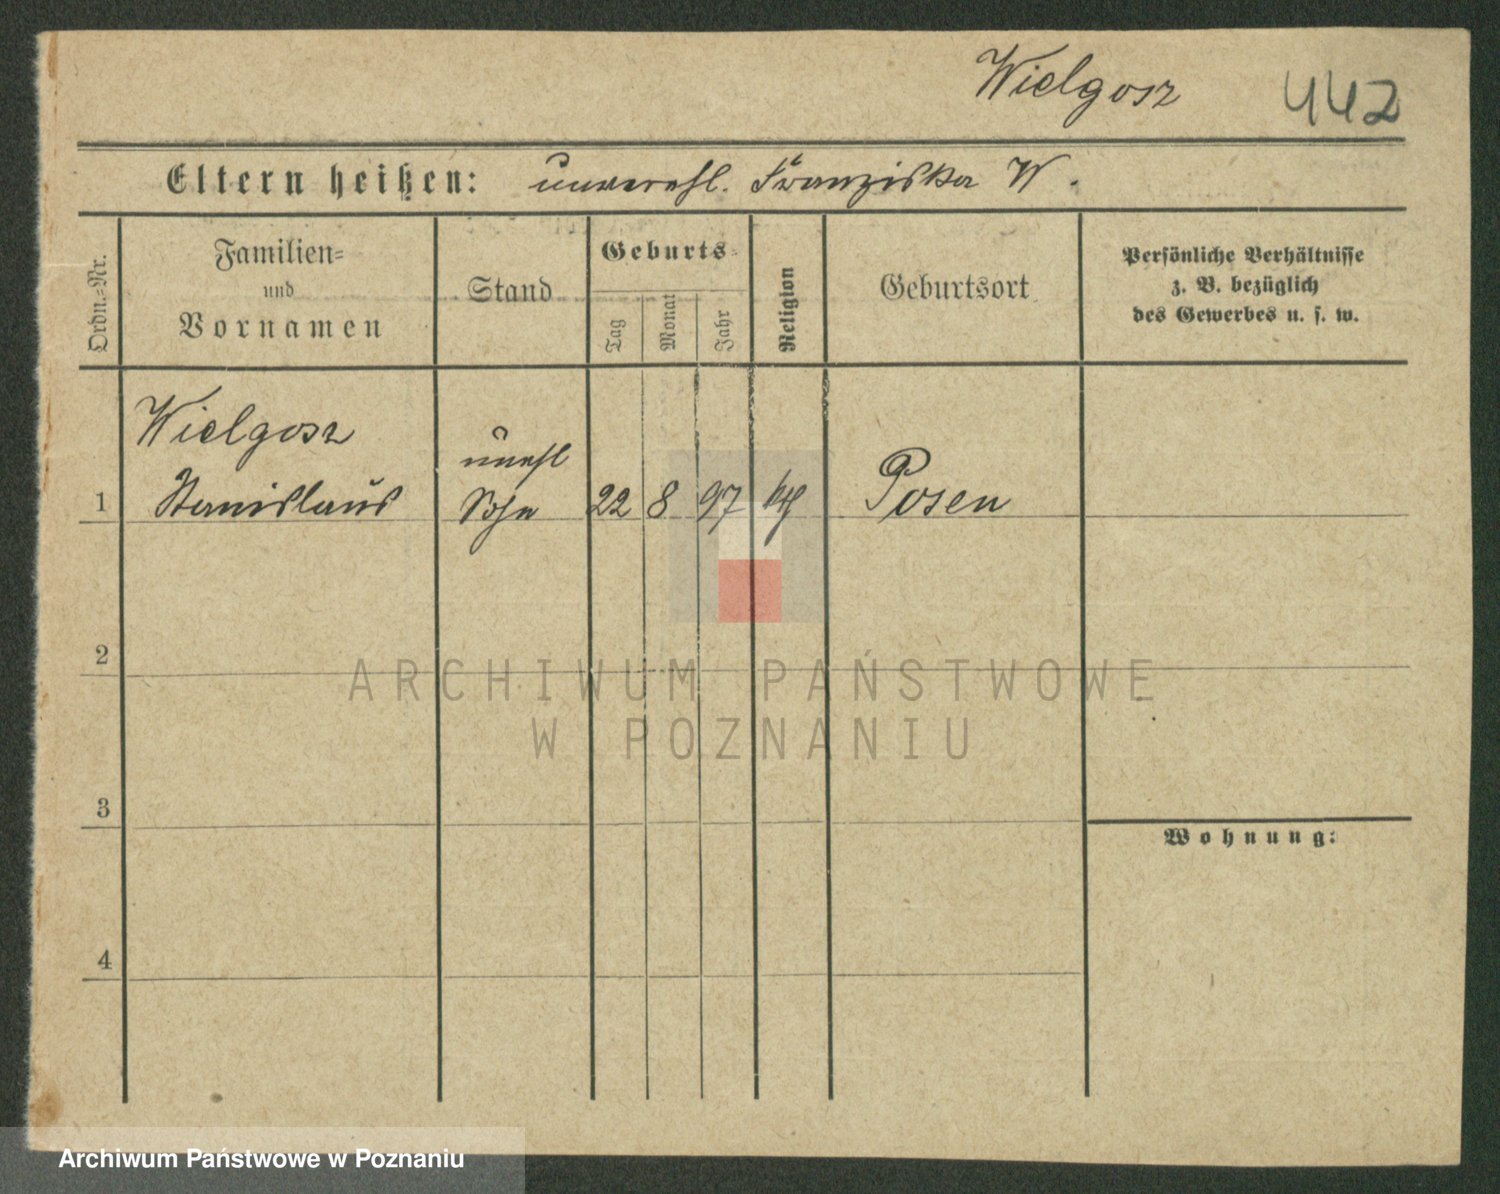 Wielgosz 442
Eltern heißen: unverehl. Franziska W.
Ordn.-Nr.
Familien-
und
Vornamen
Stand
Geburts-
Tag
Monat
Jahr
Religion
Geburtsort
Persönliche Verhältnisse
z. B. bezüglich
des Gewerbes u. s. w.
Wielgosz
unehl
1 Stanislaus Sohn 22 8 97 kth Posen
2
3
Wohnung:
4
ARCHIWUM PAŃSTWOWE
W POZNANIU
Archiwum Państwowe w Poznaniu